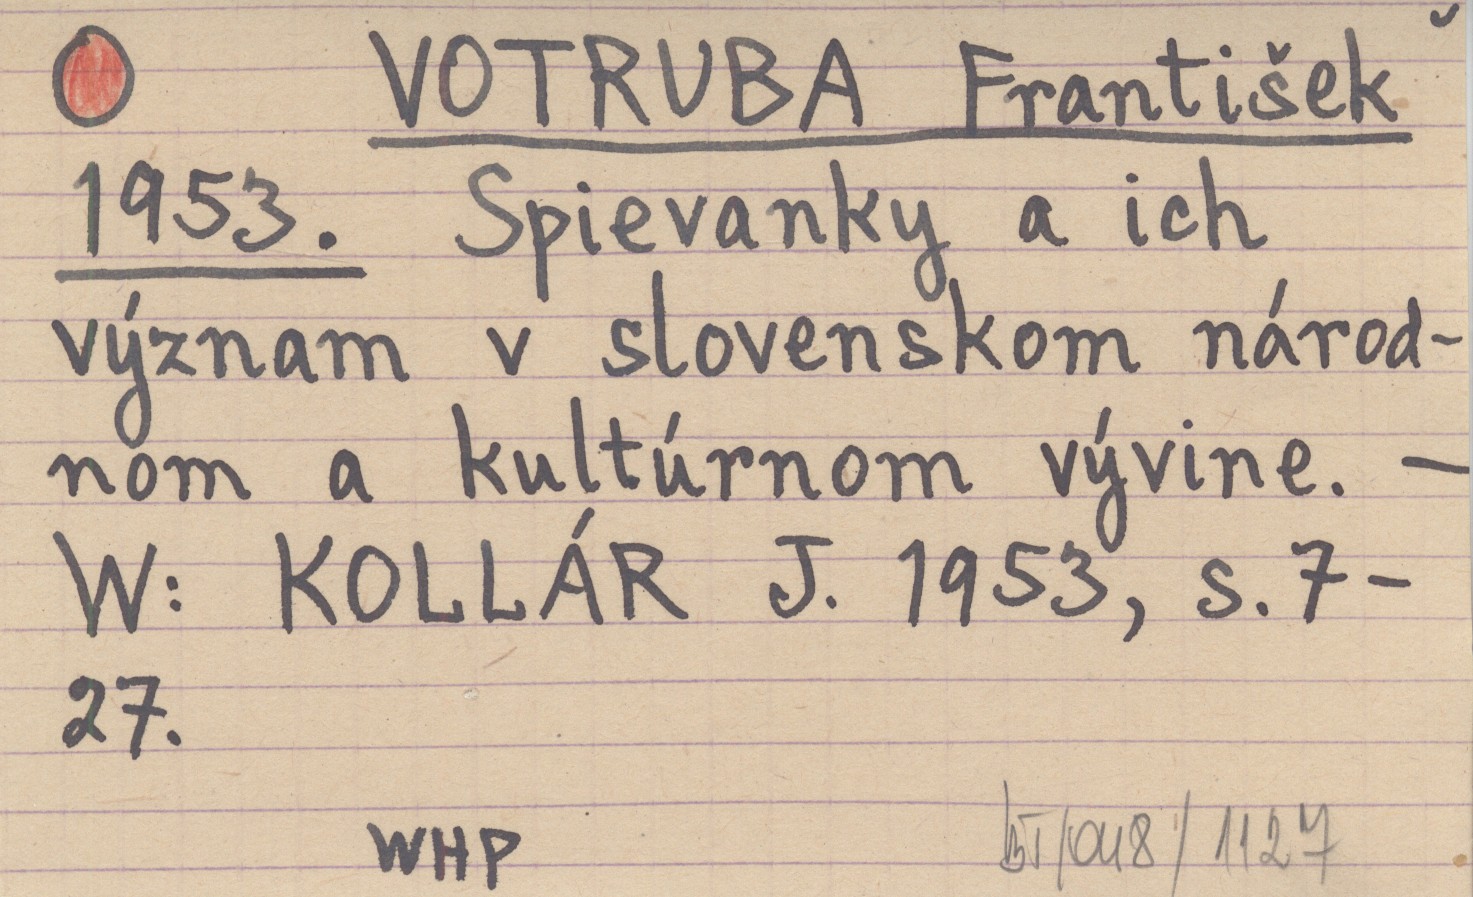 VOTRUBA František
1953. Spievanky a ich
význam v slovenskom národ-
nom a kultúrnom vývine. –
W: KOLLÁR J. 1953, s. 7-
27.
WHP
BI/048/1127